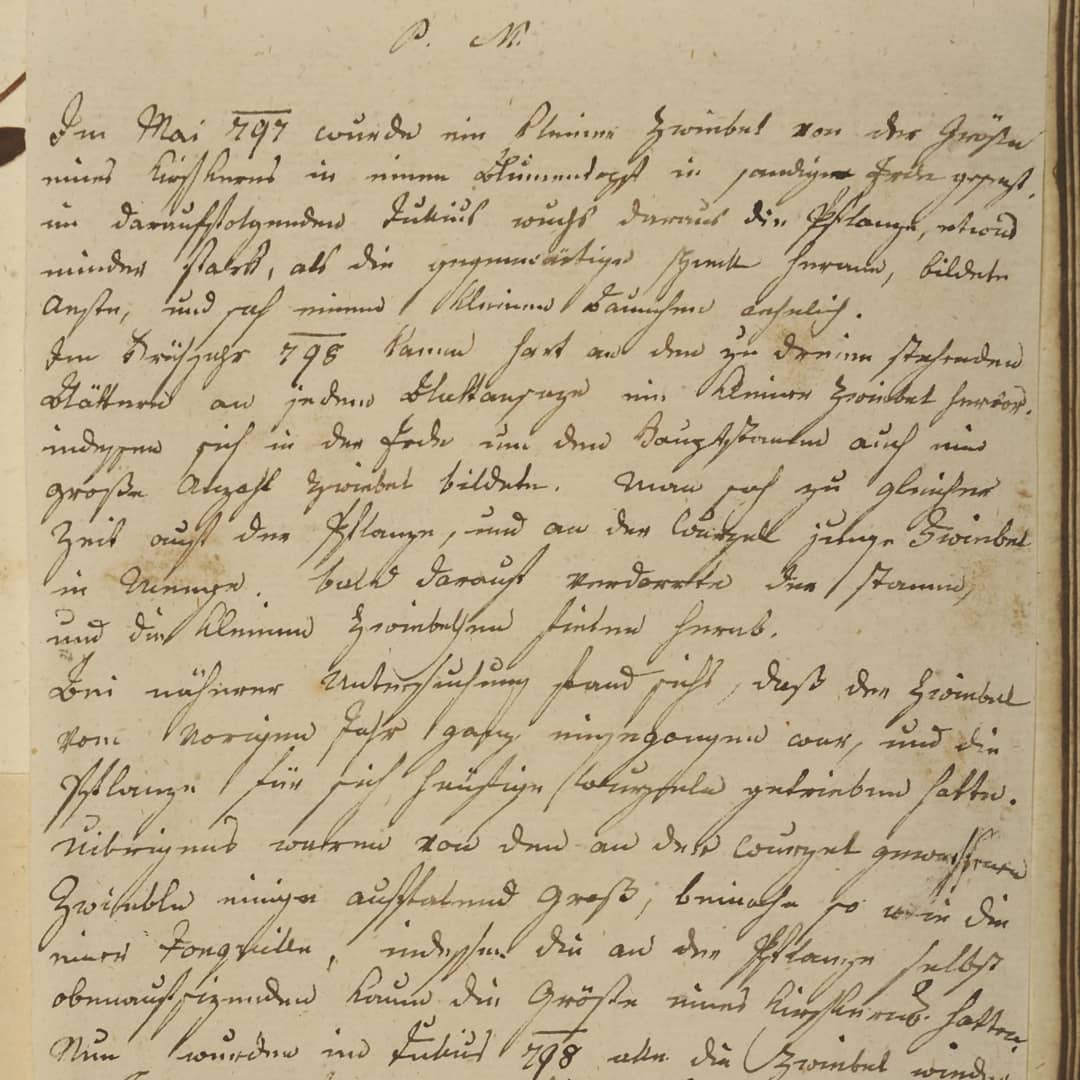 P. M.
Im Mai 797 wurde ein kleiner Zwiebel von der Größe
eines Kirschkerns in einen Blumentopf in sandige Erde gesezt,
im darauffolgenden Julius wuchs daraus die Pflanze, etwas
minder stark, als die gegenwärtige heran, bildete
Aeste, und sah einem kleinen Bäumchen aehnlich.
Im Frühjahr 798 kamm hart an den zu dreien stehenden
Blättern an jedem Blattansaze ein kleiner Zwiebel hervor,
indessen sich in der Erde um den Hauptstamm auch eine
große Anzahl Zwiebel bildete. Man sah zu gleicher
Zeit auf der Pflanze, und an der Wurzel junge Zwiebel
in Menge. Bald darauf verdorrte der Stamm,
und die kleinen Zwiebelchen fielen herab.
Bei näherer Untersuchung fand sichs, daß der Zwiebel
vom vorigen Jahr ganz eingegangen war, und die
Pflanze für sich häufige Wurzeln getrieben hatte.
Uibrigens waren von den an der Wurzel gewachsenen
Zwiebln einige auffalend groß, beinahe so wie die
einer Jonquille, indessen die an der Pflanze selbst
obenaufsizenden kaum die Größe eines Kirschkerns hatten.
Nun wurden im Julius 798 alle die Zwiebel wieder